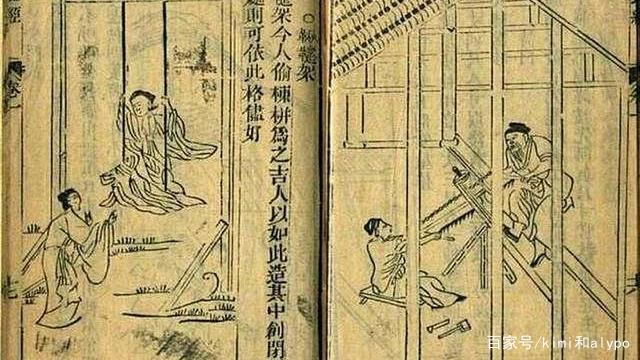 ○鞦韆架
韆架今人偷棟栟爲之吉人以如此造其中創閉
則可依此格儘好
經
卷一
七
百家号/kimi和alypo